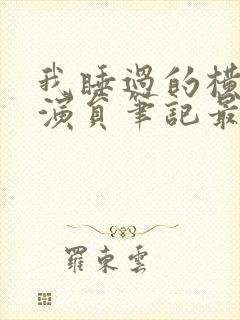 我睡過的橫
演員筆記最
羅東雲